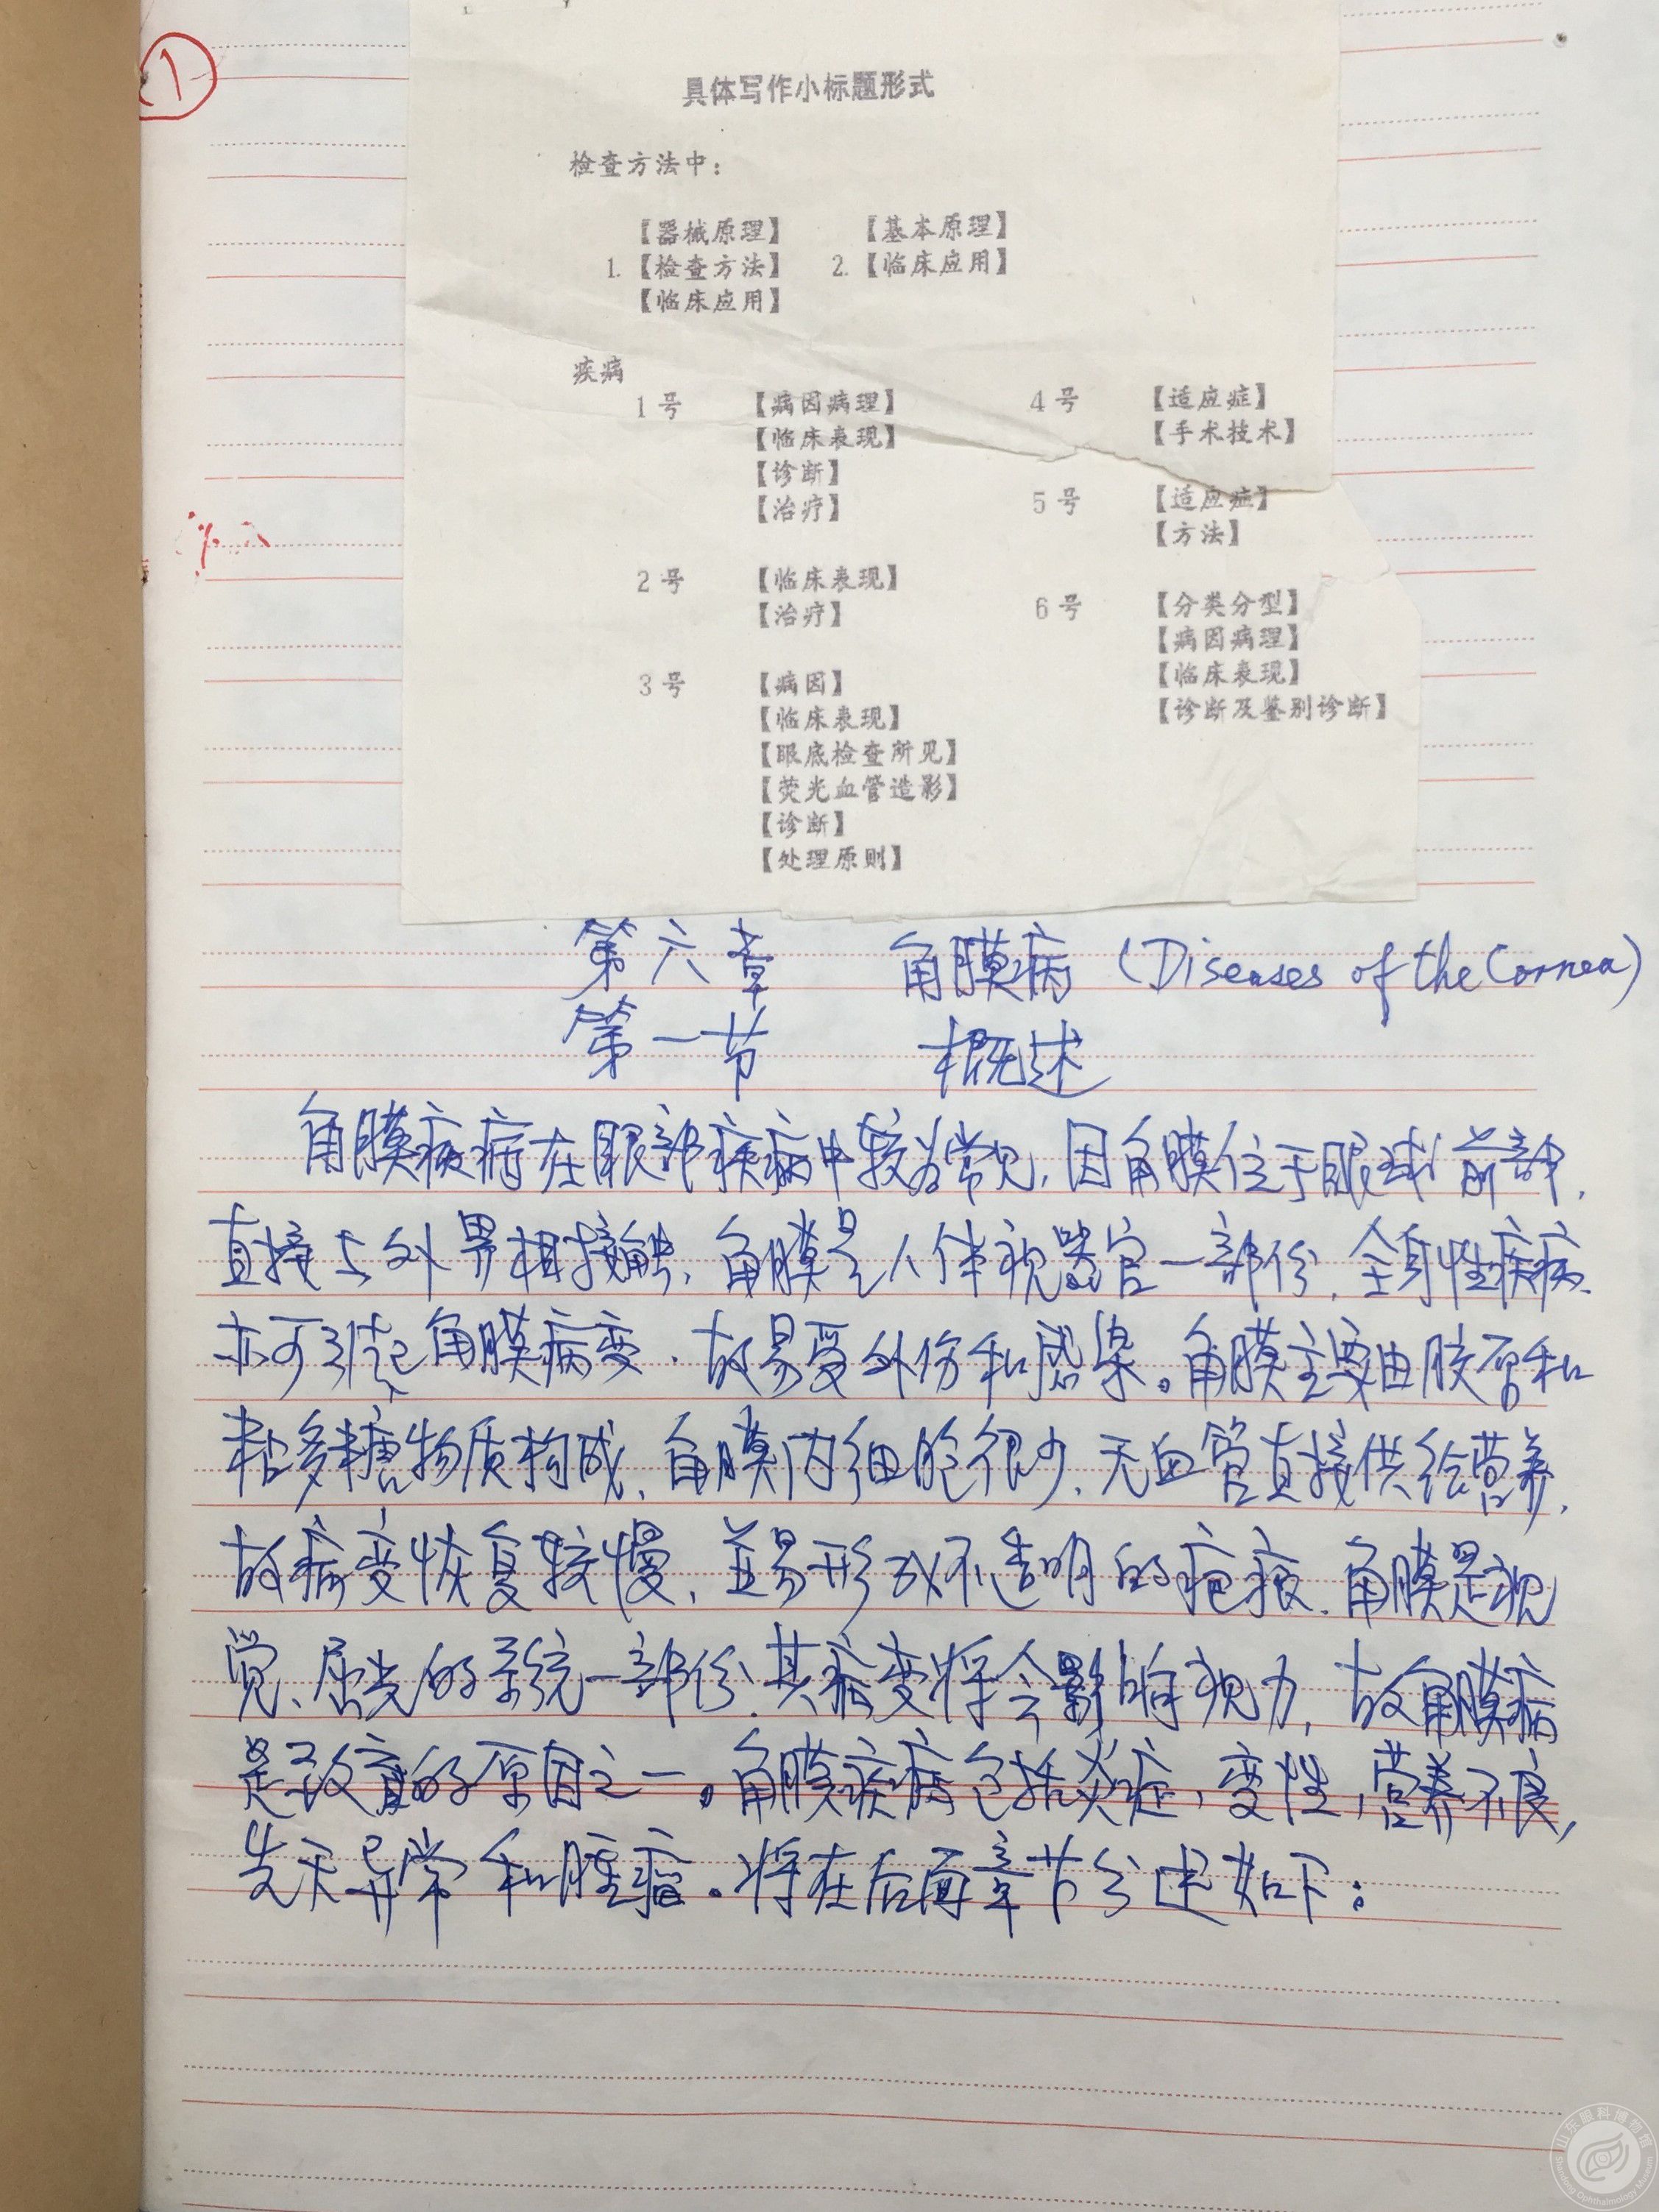 ①
具体写作小标题形式
检查方法中：
【器械原理】 【基本原理】
1.【检查方法】 2.【临床应用】
【临床应用】
疾病
1号 【病因病理】
【临床表现】
【诊断】
【治疗】
2号 【临床表现】
【治疗】
3号 【病因】
【临床表现】
【眼底检查所见】
【荧光血管造影】
【诊断】
【处理原则】
4号 【适应症】
【手术技术】
5号 【适应症】
【方法】
6号 【分类分型】
【病因病理】
【临床表现】
【诊断及鉴别诊断】
第六章 角膜病（Diseases of the Cornea）
第一节 概述
角膜疾病在眼部疾病中较为常见，因角膜位于眼球前部，
直接与外界相接触，角膜是人体视器官一部份，全身性疾病
亦可引起角膜病变，故易受外伤和感染。角膜主要由胶原和
粘多糖物质构成，角膜内细胞很少，无血管直接供给营养，
故病变恢复较慢，並易形成不透明的疤痕，角膜是视
觉、屈光的系统一部份，其病变将会影响视力，故角膜病
是致盲的原因之一。角膜疾病包括炎症，变性，营养不良，
先天异常和肿瘤。将在后面章节分述如下：
山东眼科博物馆
Shandong Ophthalmology Museum